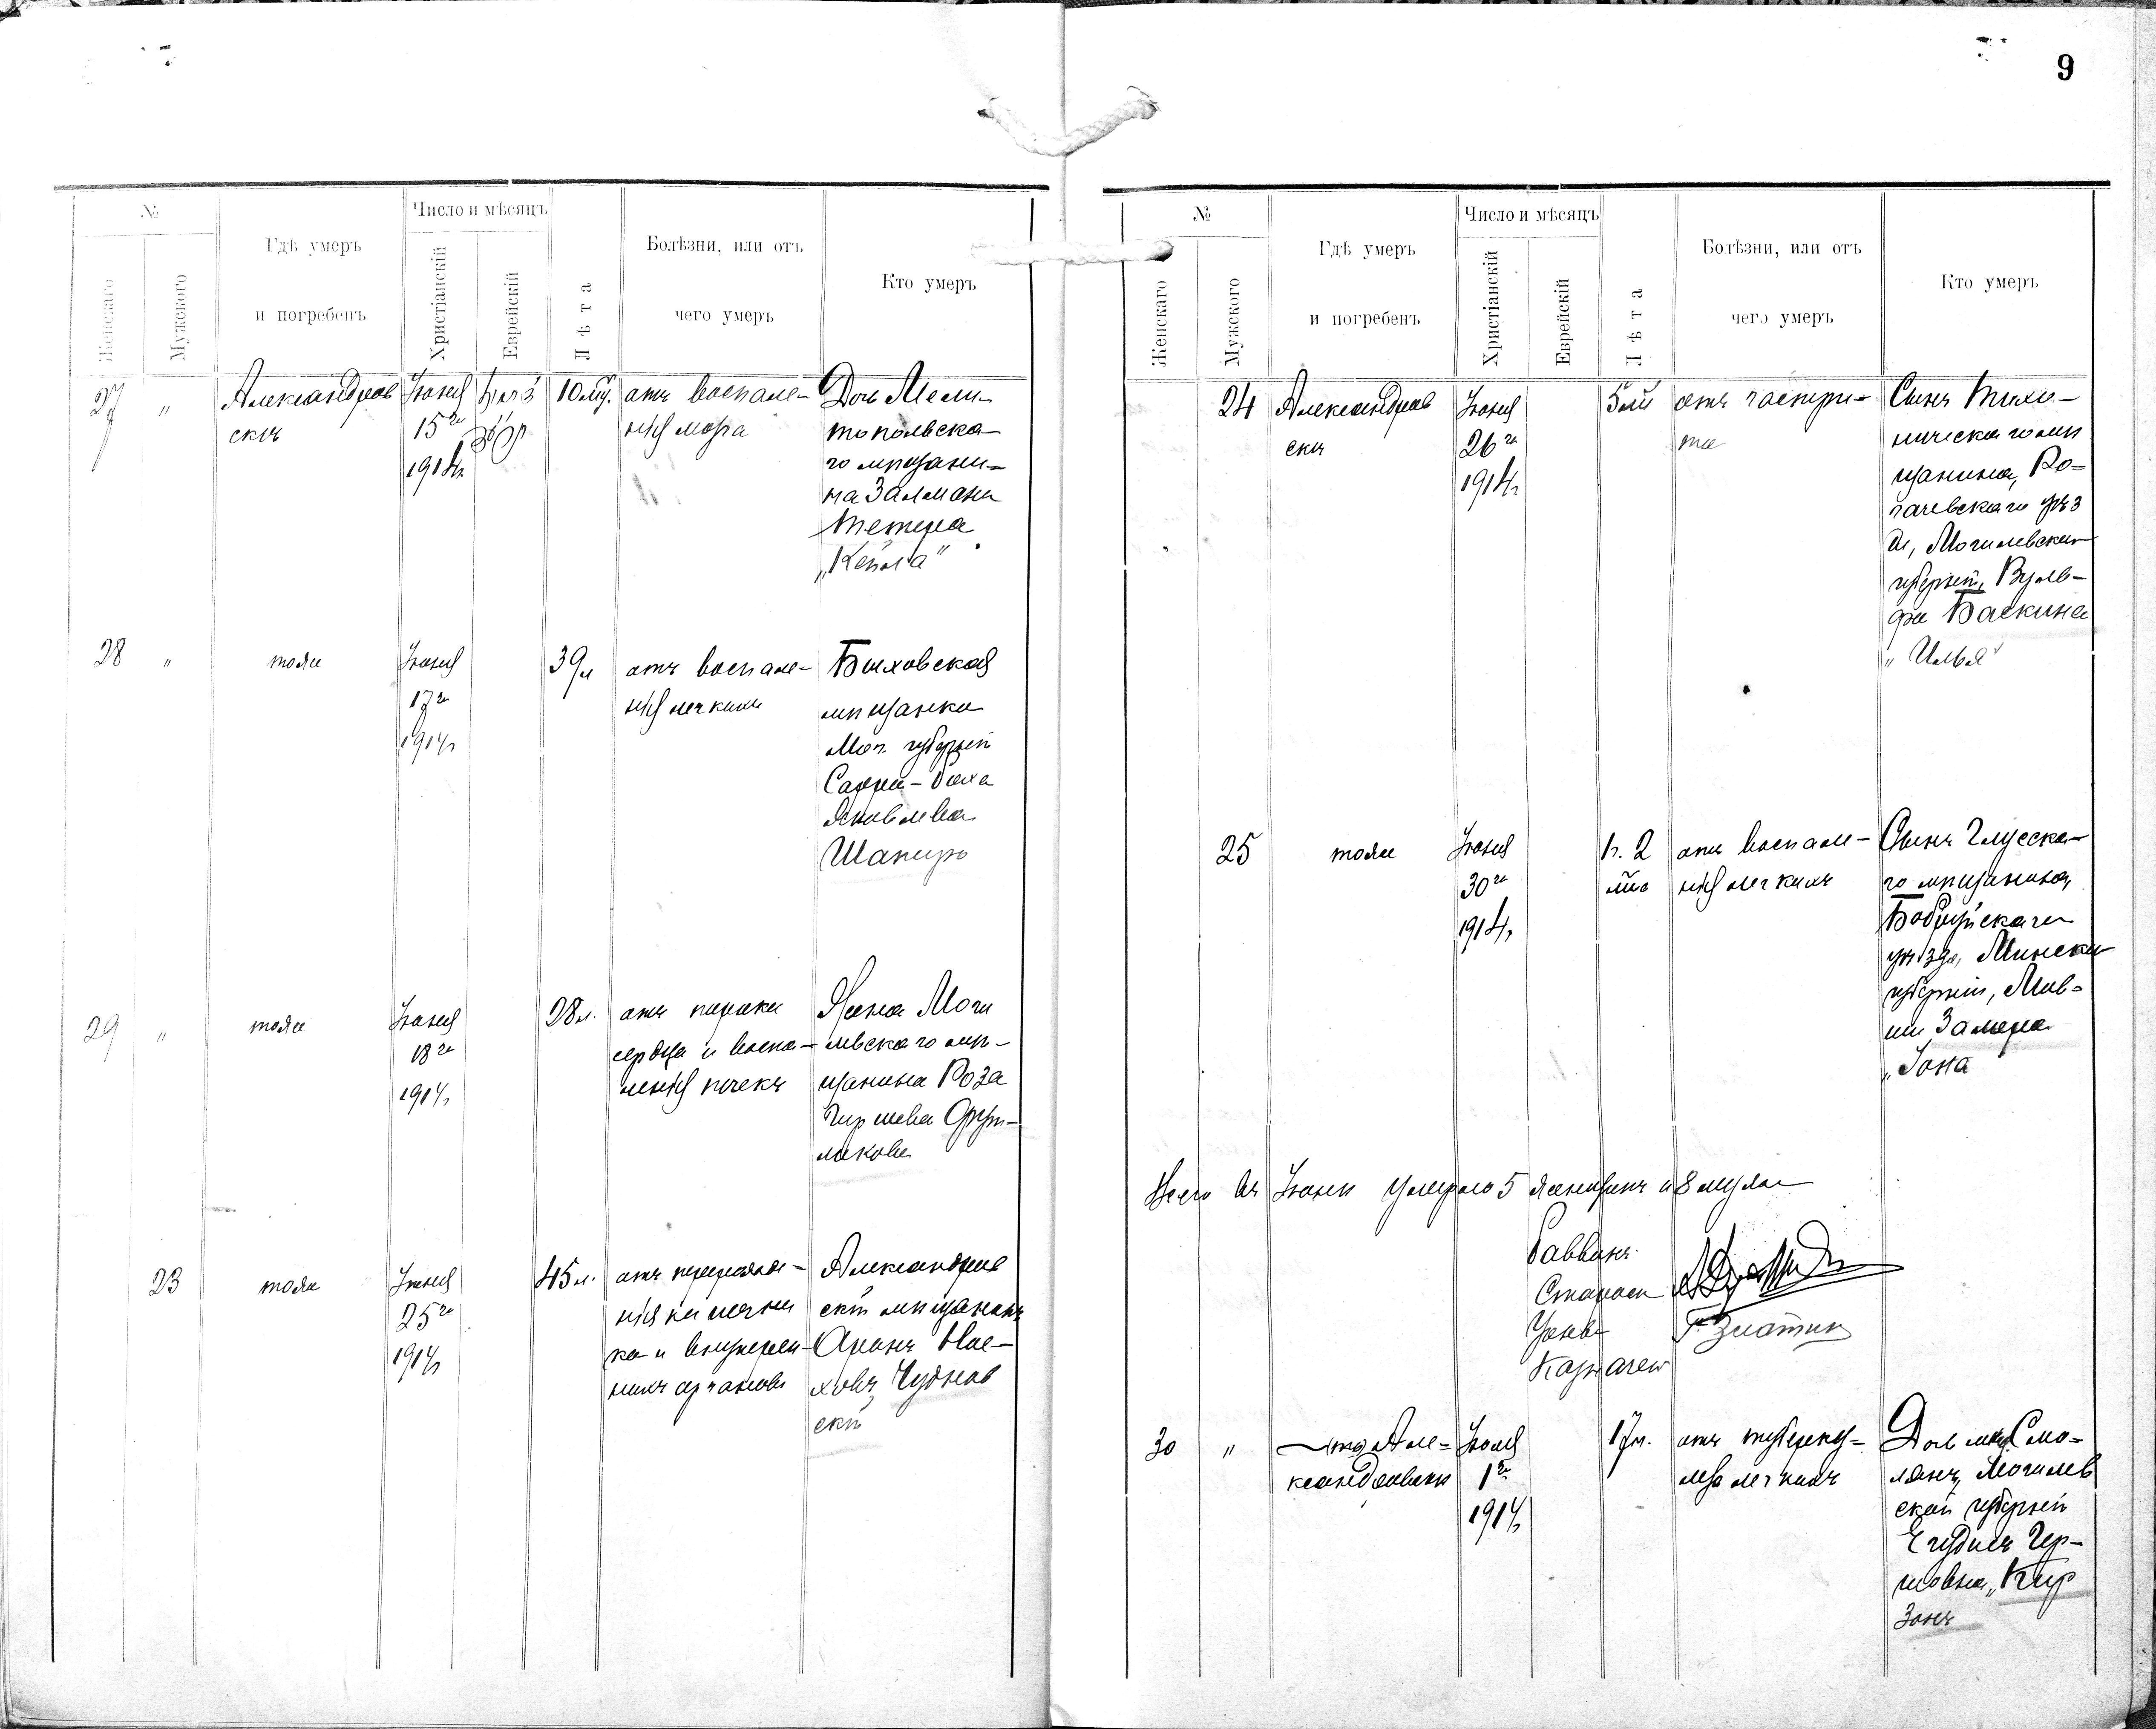 9
№
Женскаго
Мужского
Гдѣ умеръ
и погребенъ
Число и мѣсяцъ
Христіанскій
Еврейскій
Лѣта
Болѣзни, или отъ
чего умеръ
Кто умеръ
27
"
Александров
скъ
Іюня
15го
1914г.
10 мѣс.
отъ воспале-
нія мозга
Дочь Мели-
топольска-
го мѣщани-
на Залмана
Тетера
„Кейла"
28
"
тоже
Іюня
17го
1914г.
39л
отъ воспале-
нія легкихъ
Быховская
мѣщанка
Мог. губерніи
Сарра-Баха
Яковлева
Шапиро
29
"
тоже
Іюня
18го
1914г.
28л.
отъ порока
сердца и воспа-
ленія почекъ
Жена Моги
левскаго мѣ-
щанина Роза
Гиршева
23
тоже
Іюня
25го
1914г.
45л.
отъ
и внутрен-
нихъ органовъ
Александров
скій мѣщанинъ
Аронъ Ное-
ховъ Чуднов
скій
№
Женскаго
Мужского
Гдѣ умеръ
и погребенъ
Число и мѣсяцъ
Христіанскій
Еврейскій
Лѣта
Болѣзни, или отъ
чего умеръ
Кто умеръ
24
Александров
скъ
Іюня
26го
1914г.
5 мѣс
отъ гастри-
та
Сынъ Тихи-
ническаго мѣ
щанина, Ро-
гачевскаго уѣз
да, Могилевской
губерніи, Вуль-
фа Баскина
„Илья"
25
тоже
Іюня
30го
1914г.
1г. 2
мѣс
отъ воспале-
нія легкихъ
Сынъ Глусска-
го мѣщанина,
Бобруйскаго
уѣзда, Минской
губерніи, Мов-
ши
„Іона
Всего въ Іюнѣ умерло 5 женщинъ и 8 муж
Раввинъ
Староста
Учены
Г. Златин
Казначей
30
"
Але-
ксандровскѣ
Іюля
1го
1914г.
17л.
отъ туберку-
леза легкихъ
Дочь мѣщ. Смо-
лянъ, Могилев
ской губерніи
Егудисъ Гер-
шовна „Кир
зонъ